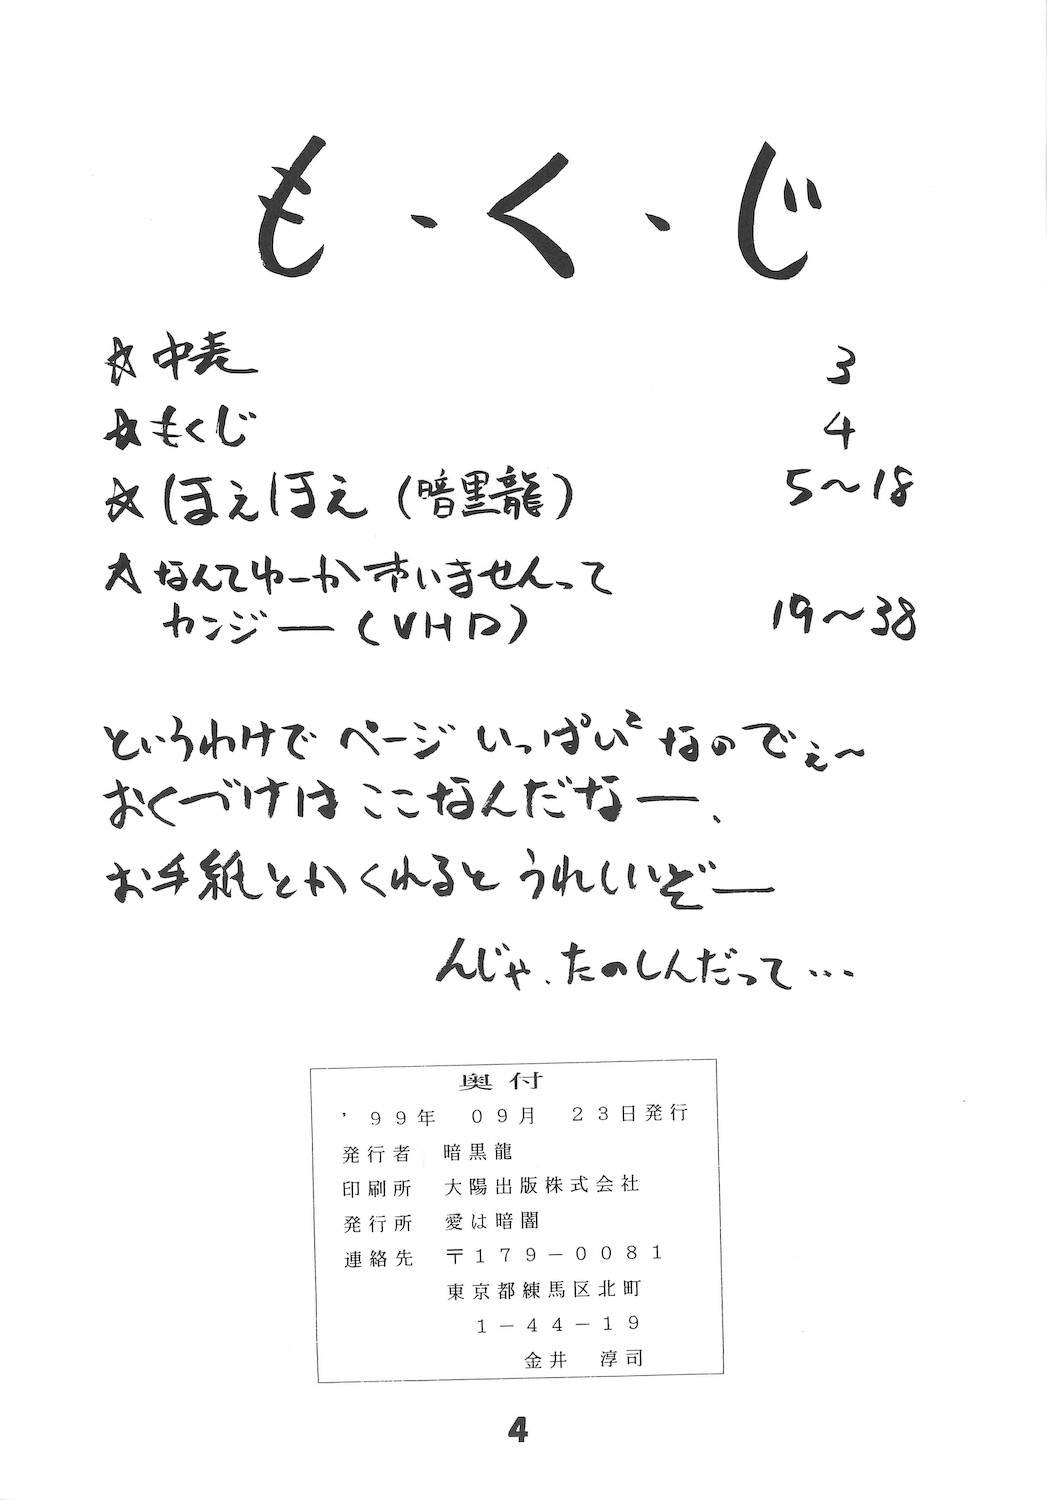 も、く、じ
☆中表 3
☆もくじ 4
☆ほえほえ(暗黒龍) 5〜18
☆なんてゆーか すいませんって
カンジー(VHD) 19〜38
というわけで ページ いっぱい²なのでぇ〜
おくづけは ここなんだなー、
お手紙とかくれると うれしいぞー
んじゃ、たのしんだって…
奥付
’99年 09月 23日発行
発行者 暗黒龍
印刷所 大陽出版株式会社
発行所 愛は暗闇
連絡先 〒179-0081
東京都練馬区北町
1-44-19
金井 淳司
4